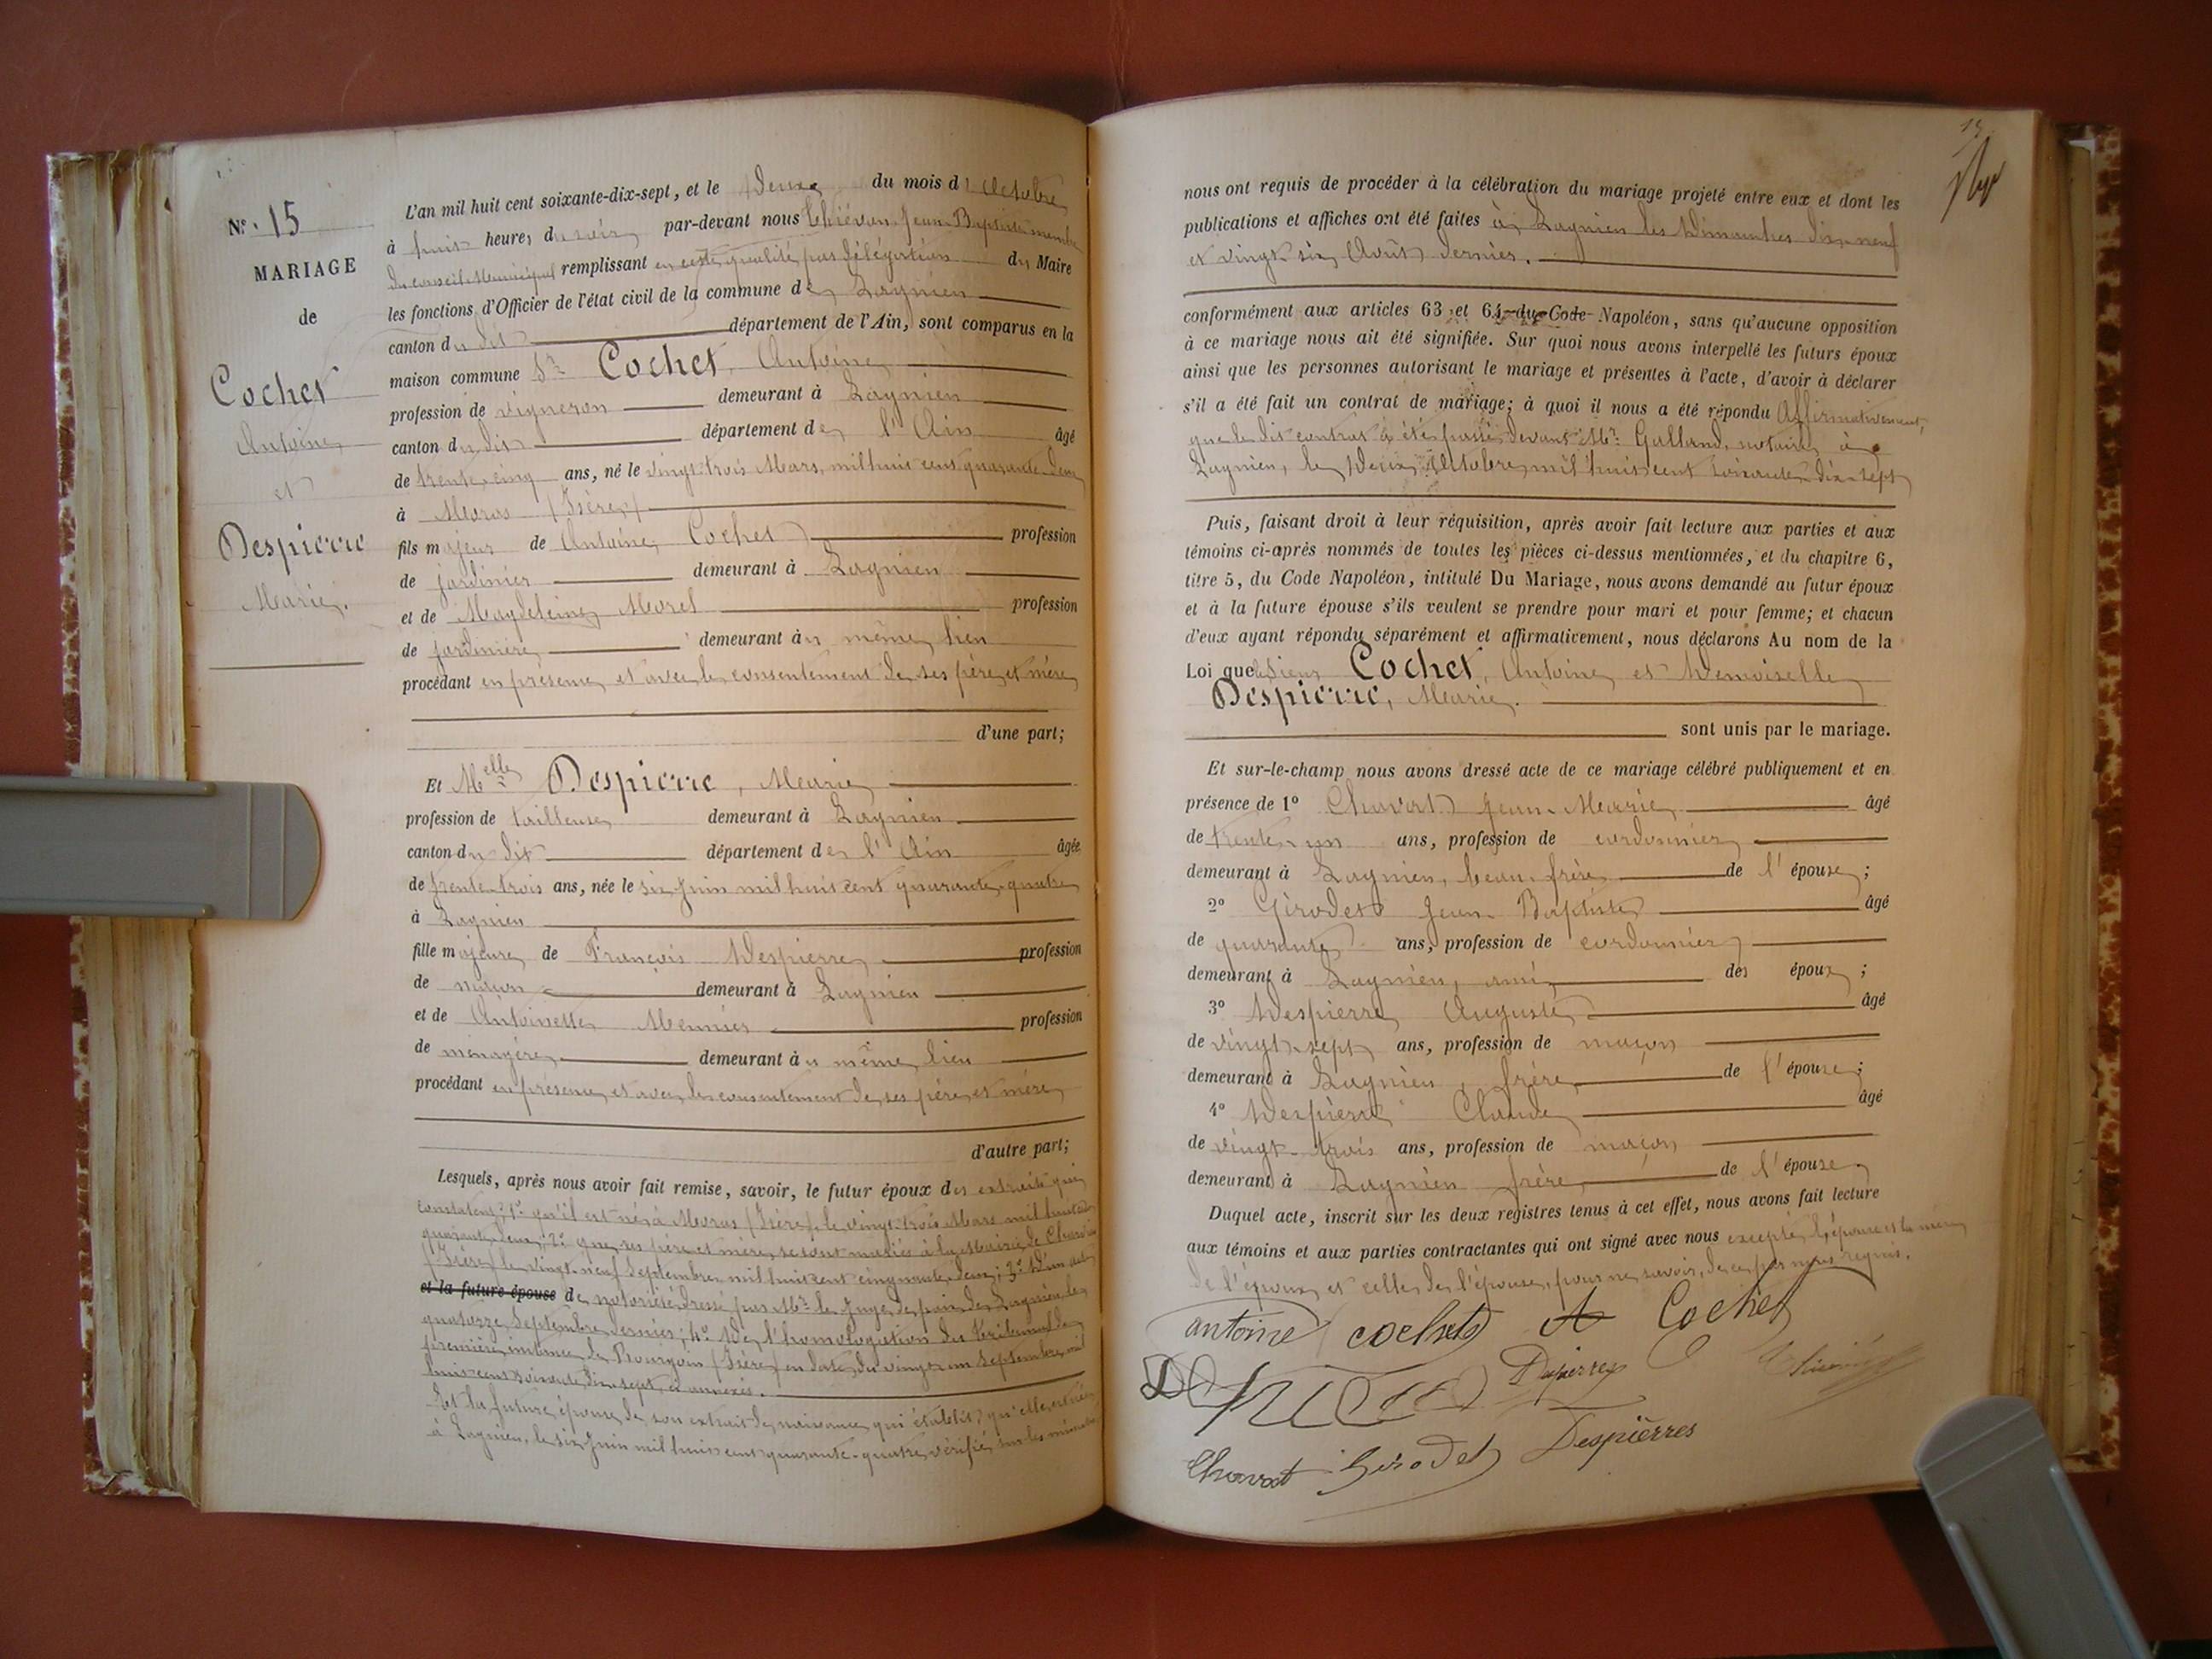 N° 15
MARIAGE
de
Cochet
Antoine
et
Despierre
Marie.
L'an mil huit cent soixante-dix-sept, et le deux du mois d'Octobre
à huit heures du soir par-devant nous Jean-Baptiste membre
du conseil Municipal remplissant en cette qualité par délégation du Maire
les fonctions d'Officier de l'état civil de la commune de Lagnieu
canton du dit département de l'Ain, sont comparus en la
maison commune Sr Cochet, Antoine
profession de vigneron demeurant à Lagnieu
canton du dit département de l'Ain âgé
de trente-cinq ans, né le vingt-trois Mars, mil huit cent quarante-deux
à Moras (Isère)
fils majeur de Antoine Cochet profession
de jardinier demeurant à Lagnieu
et de Magdeleine Morel profession
de jardinière demeurant au même lieu
procédant en présence et avec le consentement de ses père et mère
d'une part;
Et Melle Despierre, Marie
profession de tailleuse demeurant à Lagnieu
canton du dit département de l'Ain âgée
de trente-trois ans, née le six Juin mil huit cent quarante-quatre
à Lagnieu
fille majeure de François Despierre profession
de maçon demeurant à Lagnieu
et de Antoinette profession
de ménagère demeurant au même lieu
procédant en présence et avec le consentement de ses père et mère
d'autre part;
Lesquels, après nous avoir fait remise, savoir, le futur époux des extraits qui
constatent 1° qu'il est né à Moras (Isère) le vingt-trois Mars mil huit cent
quarante-deux; 2° que ses père et mère se sont mariés à la Mairie de
(Isère) le vingt-neuf Septembre mil huit cent cinquante-deux; 3° D'un acte
et la future épouse de notoriété dressé par Mr le Juge de paix de Lagnieu le
quatorze Septembre dernier; 4° De l'homologation du tribunal de
première instance de Bourgoin (Isère) en date du vingt-un Septembre mil
huit cent soixante-dix-sept, ci annexés.
Et la future épouse de son extrait de naissance qui établit qu'elle est née
à Lagnieu, le six Juin mil huit cent quarante-quatre, vérifié sur les minutes
nous ont requis de procéder à la célébration du mariage projeté entre eux et dont les
publications et affiches ont été faites à Lagnieu les Dimanches dix-neuf
et vingt-six Août dernier.
conformément aux articles 63 et 64 du Code Napoléon, sans qu'aucune opposition
à ce mariage nous ait été signifiée. Sur quoi nous avons interpellé les futurs époux
ainsi que les personnes autorisant le mariage et présentes à l'acte, d'avoir à déclarer
s'il a été fait un contrat de mariage; à quoi il nous a été répondu Affirmativement,
que le dit contrat a été passé devant Mr Galland, notaire à
Lagnieu, le deux Octobre mil huit cent soixante-dix-sept
Puis, faisant droit à leur réquisition, après avoir fait lecture aux parties et aux
témoins ci-après nommés de toutes les pièces ci-dessus mentionnées, et du chapitre 6,
titre 5, du Code Napoléon, intitulé Du Mariage, nous avons demandé au futur époux
et à la future épouse s'ils veulent se prendre pour mari et pour femme; et chacun
d'eux ayant répondu séparément et affirmativement, nous déclarons Au nom de la
Loi que le Sieur Cochet, Antoine et Demoiselle
Despierre, Marie.
sont unis par le mariage.
Et sur-le-champ nous avons dressé acte de ce mariage célébré publiquement et en
présence de 1° Chavat Jean-Marie âgé
de trente-un ans, profession de cordonnier
demeurant à Lagnieu, beau-frère de l'épouse;
2° Girodet Jean-Baptiste âgé
de quarante ans, profession de cordonnier
demeurant à Lagnieu, ami des époux;
3° Despierre Auguste âgé
de vingt-sept ans, profession de maçon
demeurant à Lagnieu, frère de l'épouse;
4° Despierre Claude âgé
de vingt-trois ans, profession de maçon
demeurant à Lagnieu frère de l'épouse
Duquel acte, inscrit sur les deux registres tenus à cet effet, nous avons fait lecture
aux témoins et aux parties contractantes qui ont signé avec nous excepté l'épouse et la mère
de l'époux et celle de l'épouse, pour ne savoir, de ce par nous requis.
antoine cochet A Cochet
Despierres
Chavat Girodet Despierres